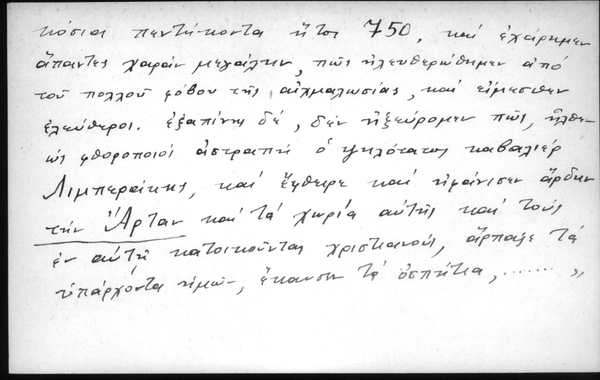 κόσιοι πεντήκοντα ἤτοι 750, καί ἐχάρημεν
ἅπαντες χαράν μεγάλην, πῶς ἠλευθερώθημεν ἀπό
τοῦ πολλοῦ φόβου τῆς αἰχμαλωσίας, καί εἴμεσθεν
ἐλεύθεροι. ἐξαπίνης δέ, δέν ἠξεύρομεν πῶς, ἦλθεν
ὡς φθοροποιοί ἀστραπή ὁ ὑψηλότατος καβαλιέρ
Λιμπεράκης, καί ἔφθειρε καί ἠφάνισεν ἄρδην
τήν Ἄρταν καί τά χωρία αὐτῆς καί τούς
ἐν αὐτῇ κατοικοῦντας χριστιανούς, ἅρπαξε τά
ὑπάρχοντα ἡμῶν, ἔκαυσεν τά ὁσπήτια, ........ »